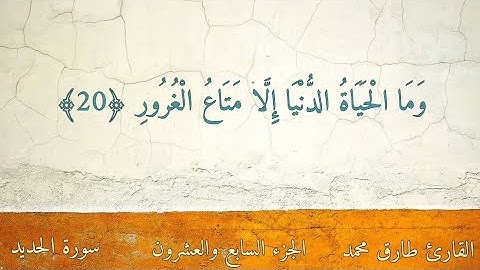 وَمَا الْحَيَاةُ الدُّنْيَا إِلَّا مَتَاعُ الْغُرُورِ ﴿20﴾
القارئ طارق محمد الجزء السابع والعشرون سورة الحديد